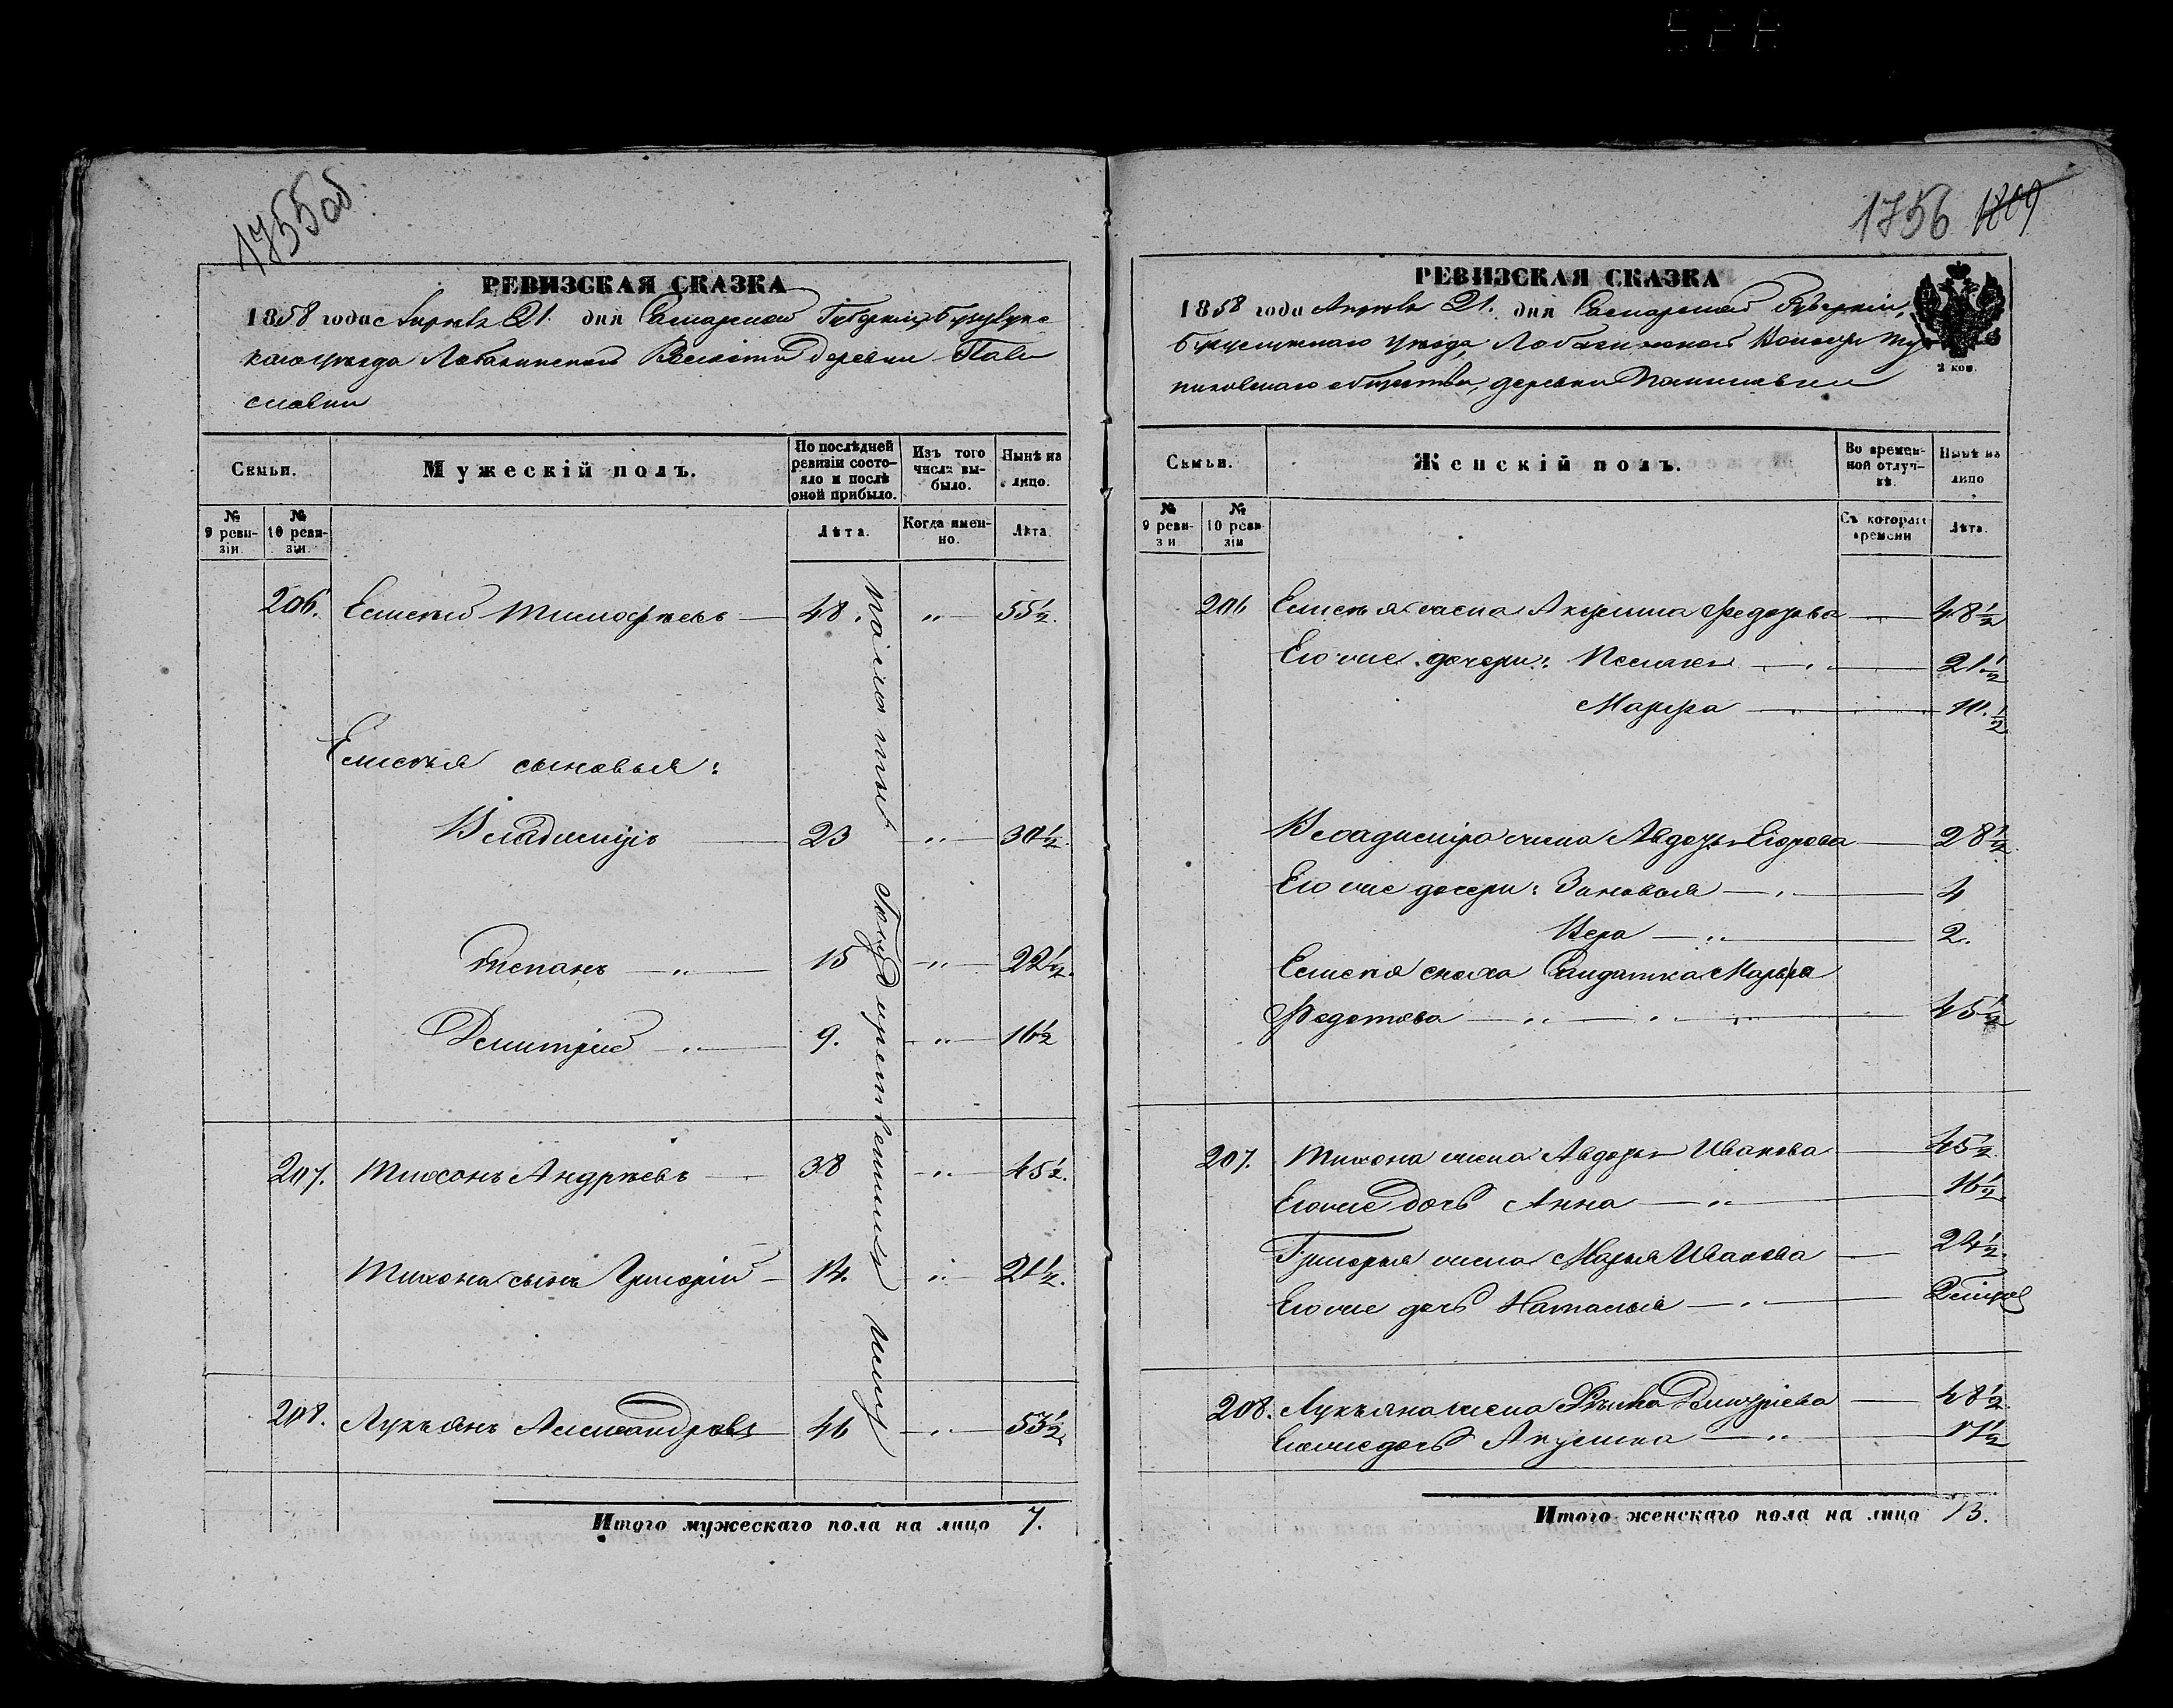 1755 об.
РЕВИЗСКАЯ СКАЗКА
1858 года Апреля 21. дня Самарской Губернiи, Бузулукс
каго уѣзда Лобазинской Волости деревни
Семьи.
Мужескiй полъ.
По послѣдней ревизiи состояло и послѣ оной прибыло.
Изъ того числа выбыло.
Нынѣ на лицо.
№ 9 ревизiи.
№ 10 ревизiи.
Лѣта.
Когда именно.
Лѣта.
206. Тимофеевъ 48. " 55½.
сыновья:
Владимiръ 23 " 30½.
Степанъ " 15 " 22½.
Дмитрiй " 9. " 16½
207. Тихонъ Андреевъ 38 " 45½.
Тихона сынъ Григорiй 14. " 21½.
208. Лукьянъ Александровъ 46 " 53½.
Итого мужескаго пола на лицо 7.
1756 1809
РЕВИЗСКАЯ СКАЗКА
1858 года Апреля 21. дня Самарской Губернiи,
Бузулукскаго уезда, Лобазинской Волости
общества, деревни
2 коп.
Семьи.
Женскiй полъ.
Во временной отлучкѣ.
Нынѣ на лицо
№ 9 ревизи
№ 10 ревизiи
Съ котораго времени
Лѣта.
206 жена Акулина Федорова 48½
Его же дочери: 21½
Марфа
Владимiра жена Авдотья Егорова 28½.
Его же дочери: Зиновья " 4
Вера " 2.
сноха Солдатка Марья
Федотова " " " 45½
207. Тихона жена Авдотья Иванова 45½.
Его же дочь Анна " 16½.
Григорья жена Марья Иванова 24½.
Его же дочь Наталья "
208. Лукьяна жена Дмитрiева 48½.
Его же дочь Акулина " 17½
Итого женскаго пола на лицо 13.